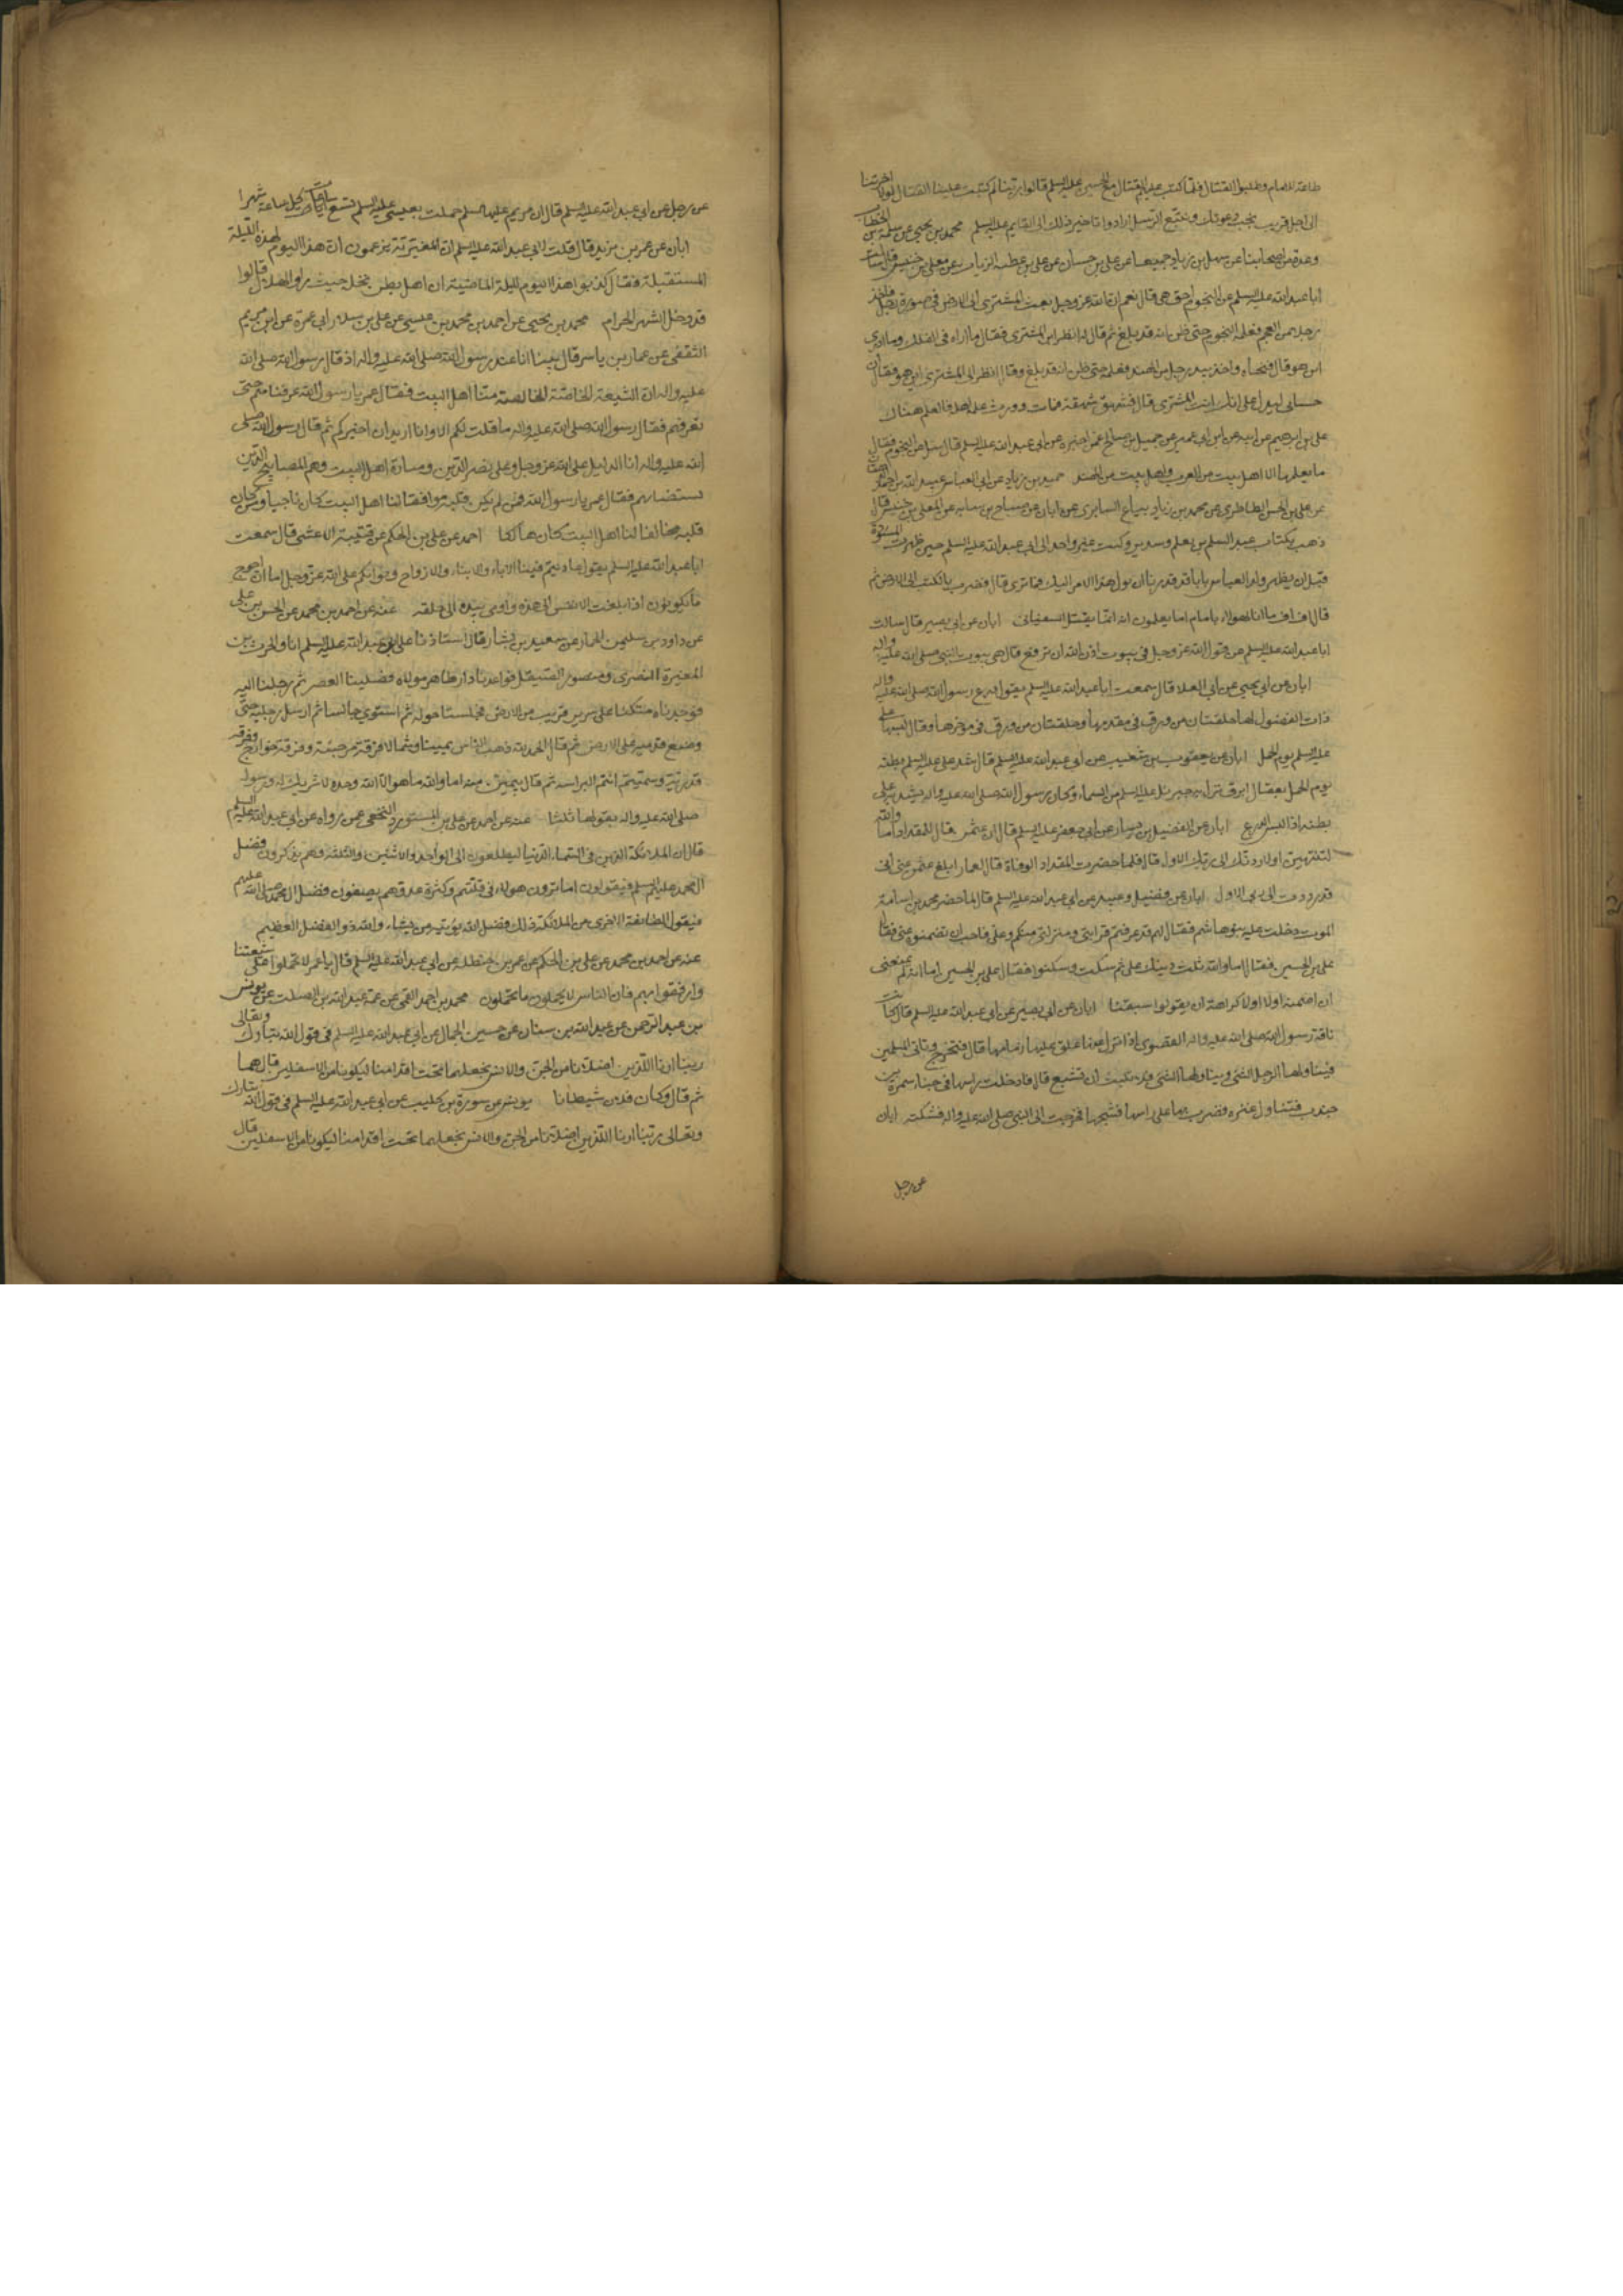 طاعة الامام وطلبوا القتال فلما كتب عليهم القتال مع الحسين عليه السلم قالوا ربنا لم كتبت علينا القتال لولا اخرتنا
الى اجل قريب نجب دعوتك ونتبع الرسل ارادوا تاخير ذلك الى القايم عليه السلم محمد بن يحيى عن سلمة بن الخطاب
وعدة من اصحابنا عن سهل بن زياد جميعا عن علي بن حسان عن علي بن عطية الزيات عن معلى بن خنيس قال سالت
ابا عبد الله عليه السلم عن النجوم احق هي قال نعم ان الله عز وجل بعث المشتري الى الارض في صورة رجل فاخذ
رجلا من العجم فعلمه النجوم حتى ظن انه قد بلغ ثم قال له انظر اين المشتري فقال ما اراه في الفلك وما ادري
اين هو قال فنحاه واخذ بيد رجل من الهند فعلمه حتى ظن انه قد بلغ وقال انظر الى المشتري اين هو فقال ان
حسابي ليدل على انك انت المشتري قال فشهق شهقة فمات وورث علمه اهله فالعلم هناك
علي بن ابرهيم عن ابيه عن ابن ابي عمير عن جميل بن صالح عمن اخبره عن ابي عبد الله عليه السلم قال سئل عن النجوم فقال
ما يعلمها الا اهل بيت من العرب واهل بيت من الهند حميد بن زياد عن ابي العباس عبيد الله بن احمد الدهقان
عن علي بن الحسن الطاطري عن محمد بن زياد بياع السابري عن ابان عن صباح بن سيابه عن المعلى بن خنيس قال
ذهبت بكتاب عبد السلم بن نعيم وسدير وكتب غير واحد الى ابي عبد الله عليه السلم حين ظهرت المسودة
قبل ان يظهر ولد العباس بانا قد قدرنا ان يول هذا الامر اليك فما ترى قال فضرب بالكتب الى الارض ثم
قال اف اف ما انا لهولاء بامام اما يعلمون انه انما يقتل السفياني ابان عن ابي بصير قال سالت
ابا عبد الله عليه السلم عن قول الله عز وجل في بيوت اذن الله ان ترفع قال هي بيوت النبي صلى الله عليه واله
ابان عن ابي يحيى عن ابي العلا قال سمعت ابا عبد الله عليه السلم يقول درع رسول الله صلى الله عليه واله
ذات الفضول لها حلقتان من ورق في مقدمها وحلقتان من ورق في مؤخرها وقال لبسها علي
عليه السلم يوم الجمل ابان عن يعقوب بن شعيب عن ابي عبد الله عليه السلم قال شد علي عليه السلم بطنه
يوم الجمل بعقال ابرق نزل به جبرئيل عليه السلم من السماء وكان رسول الله صلى الله عليه واله يشد به على
بطنه اذا لبس الدرع ابان عن الفضيل بن يسار عن ابي جعفر عليه السلم قال ان عثمن قال للمقداد اما والله
لتنتهين او لاردنك الى ربك الاول قال فلما حضرت المقداد الوفاة قال لعمار ابلغ عثمن عني اني
قد رددت الى ربي الاول ابان عن فضيل وعبيد عن ابي عبد الله عليه السلم قال لما حضر محمد بن اسامة
الموت دخلت عليه بنو هاشم فقال لهم قد عرفتم قرابتي ومنزلتي منكم وعلي دين فاحب ان تضمنوه عني فقال
علي بن الحسين فقال اما والله ثلث دينك علي ثم سكت وسكتوا فقال علي بن الحسين اما انه لم يمنعني
ان اضمنه اولا كراهة ان يقولوا سبقنا ابان عن ابي بصير عن ابي عبد الله عليه السلم قال كانت
ناقة رسول الله صلى الله عليه واله القصوى اذا نزل عنها علق عليها زمامها قال فتخرج وتاتي المسلمين
فيناولها الرجل الشئ ويناولها الشئ فلا تلبث ان تشبع قال فادخلت راسها في خبا سمرة بن
جندب فتناول عنزه فضرب بها على راسها فشجها فخرجت الى النبي صلى الله عليه واله فشكته ابان
عن رجل
عن رجل عن ابي عبد الله عليه السلم قال ان مريم عليها السلم حملت بعيسى عليه السلم تسع ساعات كل ساعة شهرا
ابان عن عمر بن يزيد قال قلت لابي عبد الله عليه السلم ان المغيرية يزعمون ان هذا اليوم لهذه الليلة
المستقبلة فقال كذبوا هذا اليوم لليلة الماضية ان اهل بطن نخلة حيث راوا الهلال قالوا
قد دخل الشهر الحرام محمد بن يحيى عن احمد بن محمد بن عيسى عن علي بن ابي عمرة عن ابي مريم
الثقفي عن عمار بن ياسر قال بينا انا عند رسول الله صلى الله عليه واله اذ قال رسول الله صلى الله
عليه واله ان الشيعة الخاصة الخالصة منا اهل البيت فقال عمر يا رسول الله عرفناهم حتى
نعرفهم فقال رسول الله صلى الله عليه واله ما قلت لكم الا وانا اريد ان اخبركم ثم قال رسول الله صلى
الله عليه واله انا الدليل على الله عز وجل وعلي نصر الدين ومنارة اهل البيت وهم المصابيح الذين
يستضاء بهم فقال عمر يا رسول الله فمن لم يكن قلبه موافقا لنا اهل البيت كان ناجيا ومن كان
قلبه مخالفا لنا اهل البيت كان هالكا احمد عن علي بن الحكم عن قتيبة الاعشى قال سمعت
ابا عبد الله عليه السلم يقول عاديتم فينا الاباء والابناء والازواج وثوابكم على الله عز وجل اما ان احوج
ما تكونون اذا بلغت الانفس الى هذه واومى بيده الى حلقه عنه عن احمد بن محمد عن الحسن بن علي
عن داود بن سليمن الحمار عن سعيد بن يسار قال استاذنا على ابي عبد الله عليه السلم انا والحرث بن
المغيرة النصري ومنصور الصيقل فواعدنا دار طاهر مولاه فصلينا العصر ثم رحنا اليه
فوجدناه متكئا على سرير قريب من الارض فجلسنا حوله ثم استوى جالسا ثم ارسل رجليه حتى
وضع قدميه على الارض ثم قال الحمد لله ذهب الناس يمينا وشمالا فرقة مرجئة وفرقة خوارج وفرقة
قدرية وسميتم انتم الترابية ثم قال بيمين منه اما والله ما هو الا الله وحده لا شريك له ورسوله
صلى الله عليه واله يقولها ثلثا عنه عن احمد عن علي بن المستورد النخعي عمن رواه عن ابي عبد الله عليه السلم
قال ان الملائكة الذين في السماء الدنيا ليطلعون الى الواحد والاثنين والثلثة وهم يذكرون فضل
ال محمد عليهم السلم فيقولون اما ترون هولاء في قلتهم وكثرة عدوهم يصفون فضل ال محمد صلى الله عليهم
فيقول الطائفة الاخرى من الملائكة ذلك فضل الله يؤتيه من يشاء والله ذو الفضل العظيم
عنه عن احمد بن محمد عن علي بن الحكم عن عمر بن حنظلة عن ابي عبد الله عليه السلم قال يا عمر لا تحملوا على شيعتنا
وارفقوا بهم فان الناس لا يحتملون ما تحتملون محمد بن احمد القمي عن عمه عبد الله بن الصلت عن يونس
بن عبد الرحمن عن عبد الله بن سنان عن حسين الجمال عن ابي عبد الله عليه السلم في قول الله تبارك وتعالى
ربنا ارنا اللذين اضلانا من الجن والانس نجعلهما تحت اقدامنا ليكونا من الاسفلين قال هما
ثم قال وكان فلان شيطانا يونس عن سورة بن كليب عن ابي عبد الله عليه السلم في قول الله تبارك
وتعالى ربنا ارنا اللذين اضلانا من الجن والانس نجعلهما تحت اقدامنا ليكونا من الاسفلين قال